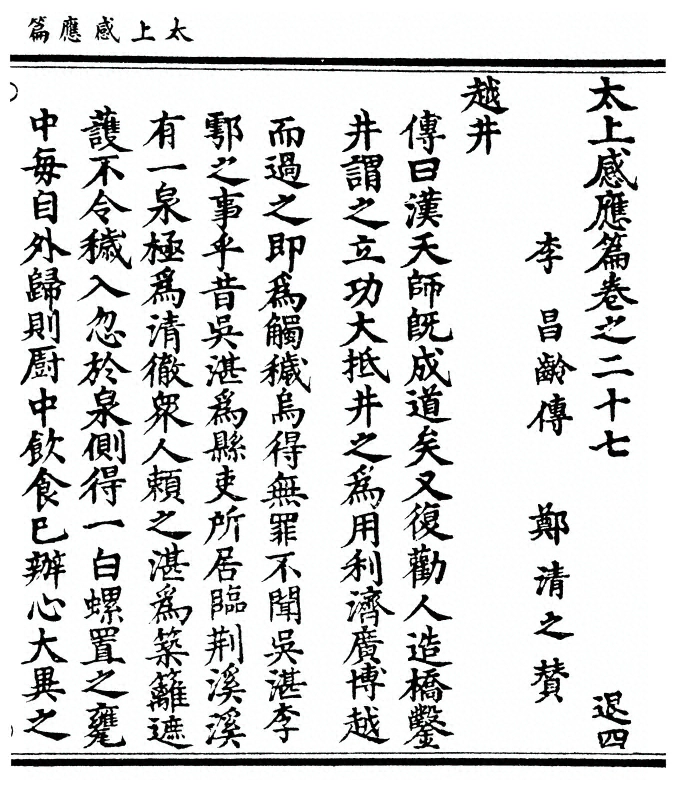 太上感應篇
太上感應篇卷之二十七 退四
李昌齡傳 鄭清之賛
越井
傳曰漢天師旣成道矣又復勸人造橋鑿
井謂之立功大抵井之爲用利濟廣博越
而過之即爲觸穢烏得無罪不聞吳湛李
鄠之事乎昔吳湛爲縣吏所居臨荆溪溪
有一泉極爲清徹衆人賴之湛爲築籬遮
護不令穢入忽於泉側得一白螺置之甕
中每自外歸則厨中飲食已辦心大異之